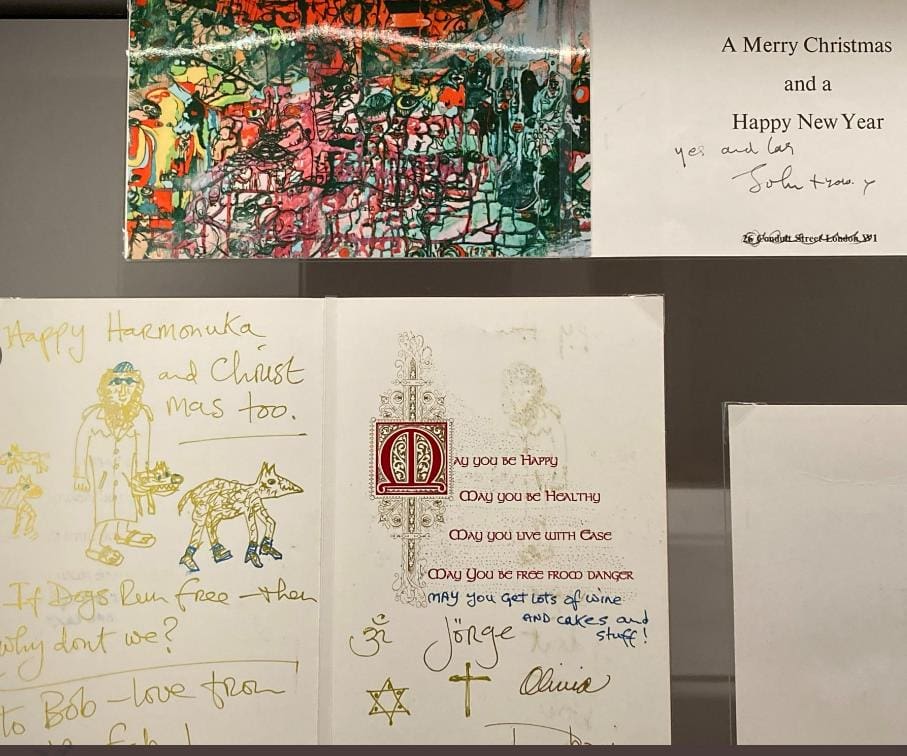 A Merry Christmas
and a
Happy New Year
yes and
John + 
26 Conduit Street London W1
Happy Harmonuka
and Christ
mas too.
If Dogs Run free – then
why dont we?
to Bob – love from
MAY YOU BE HAPPY
MAY YOU BE HEALTHY
MAY YOU LIVE WITH EASE
MAY YOU BE FREE FROM DANGER
MAY YOU GET LOTS OF WINE
AND CAKES and
stuff!
ॐ
Jörge
Olivia